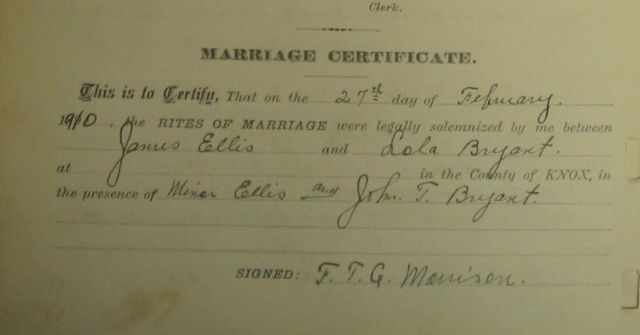 Clerk.
MARRIAGE CERTIFICATE.
This is to Certify, That on the 27th day of February.
1910, the RITES OF MARRIAGE were legally solemnized by me between
James Ellis and Lola Bryant.
at in the County of KNOX, in
the presence of Minor Ellis and John. T. Bryant.
SIGNED: F. T. G. Morrison.